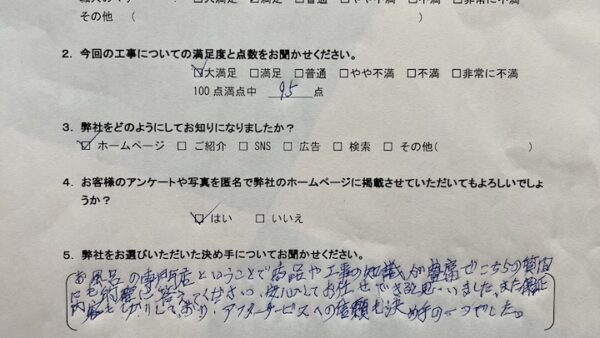 □大満足 □満足 □普通 □やや不満 □不満 □非常に不満
その他 (　　　)
2. 今回の工事についての満足度と点数をお聞かせください。
☑大満足 □満足 □普通 □やや不満 □不満 □非常に不満
100点満点中 95 点
3. 弊社をどのようにしてお知りになりましたか？
☑ ホームページ □ ご紹介 □ SNS □ 広告 □ 検索 □ その他(　　　)
4. お客様のアンケートや写真を匿名で弊社のホームページに掲載させていただいてもよろしいでしょ
うか？
☑ はい □ いいえ
5. 弊社をお選びいただいた決め手についてお聞かせください。
お風呂の専門店ということで商品や工事の知識が豊富でこちらの質問
にも的確に答えてくださり、安心してお任せできると思いました。また保証
内容もしっかりしており、アフターサービスへの信頼も決め手の一つでした。